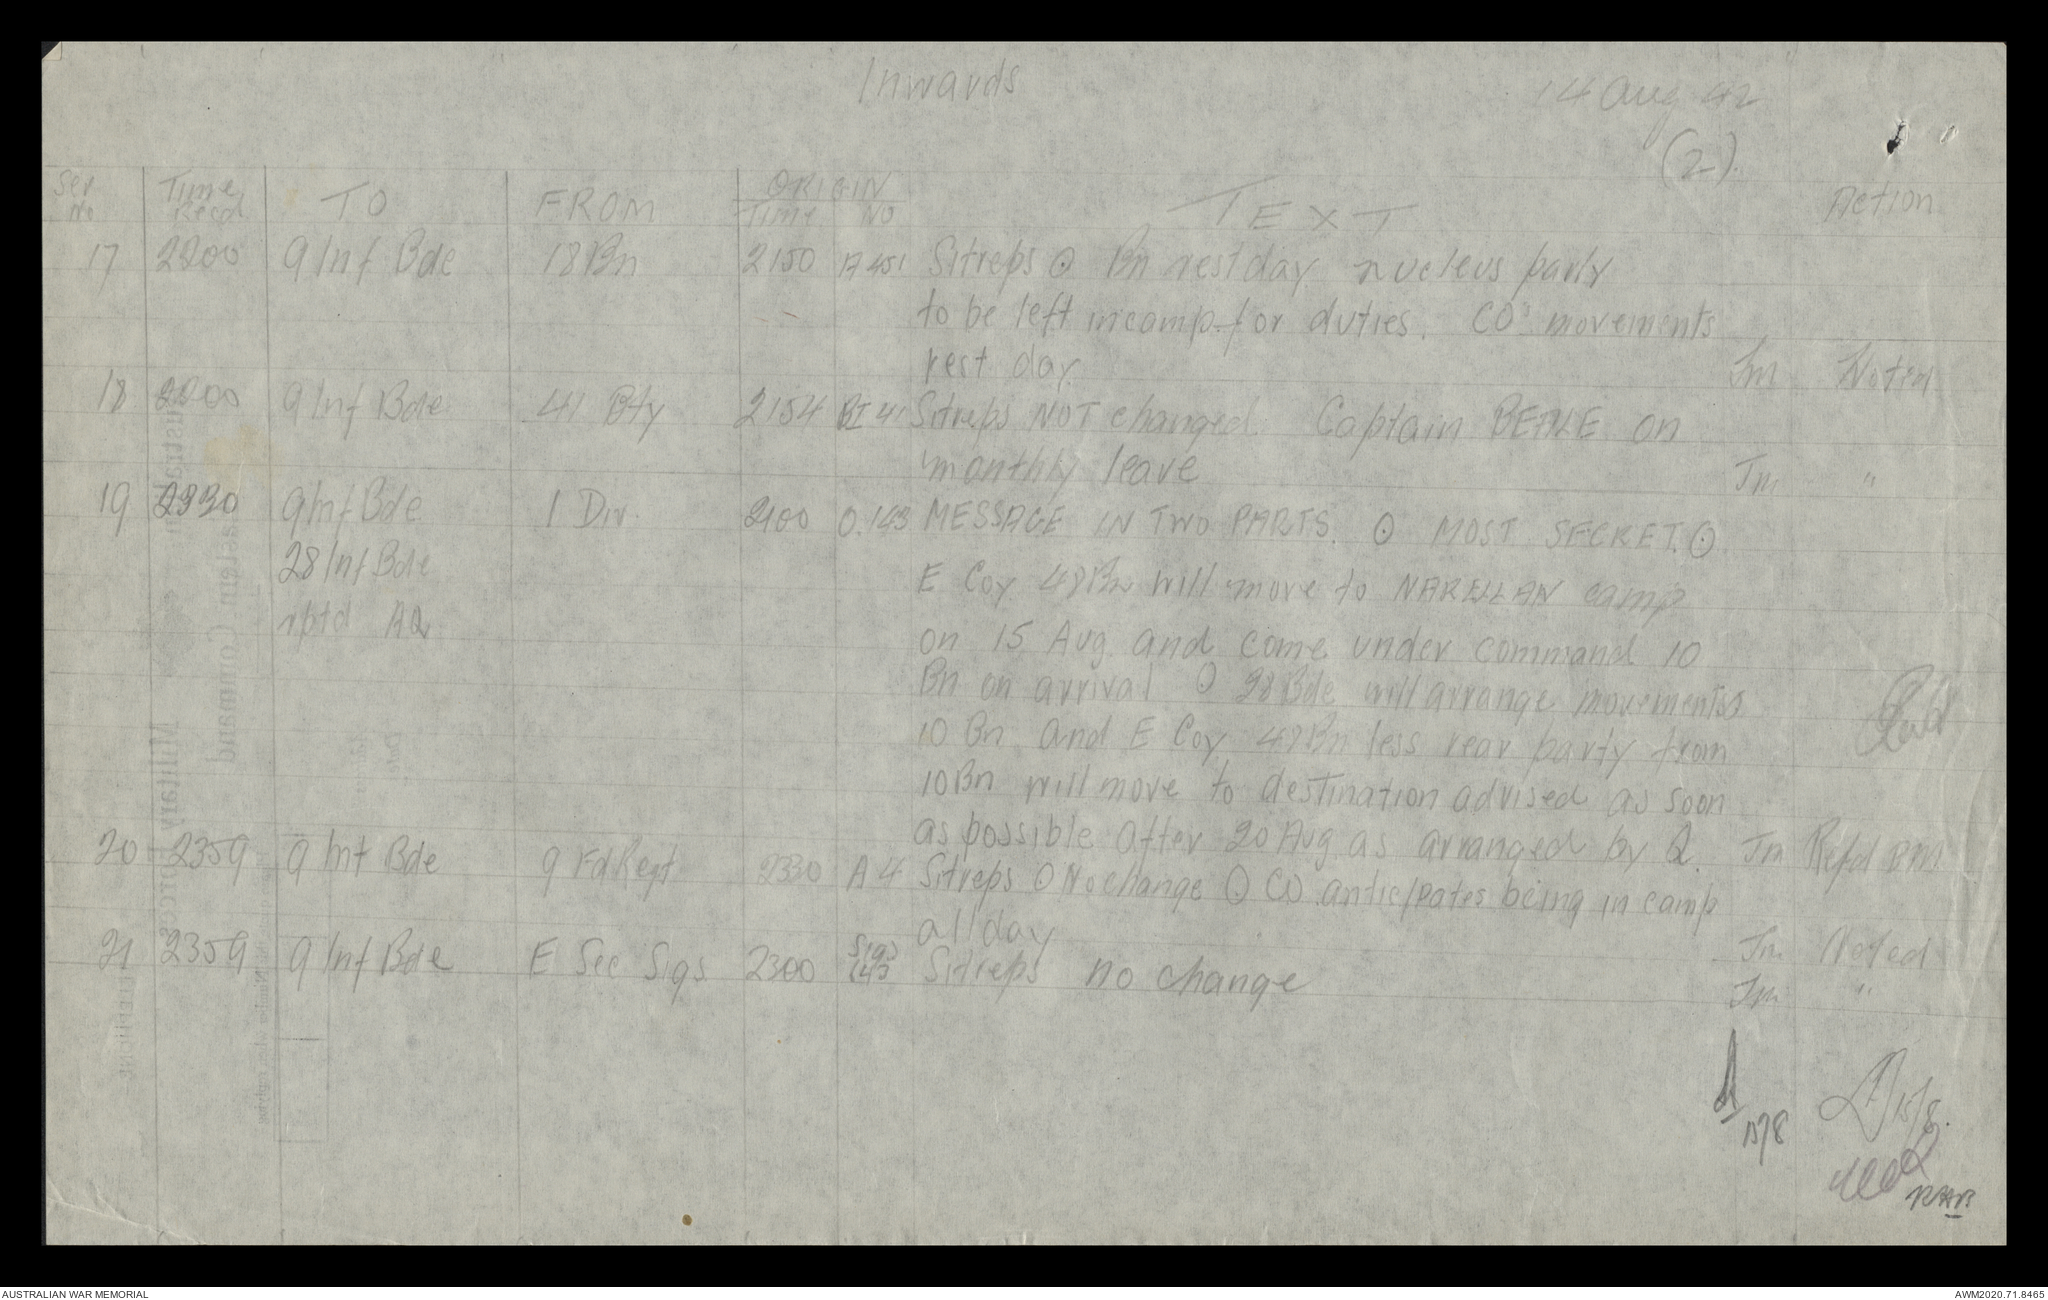 Inwards
14 Aug 42
(2).
Ser No | Time Recd | TO | FROM | ORIGIN Time | No | TEXT | Action
17 | 2200 | 9 Inf Bde | 18 Bn | 2150 | A 451 | Sitreps ⊙ Bn rest day nucleus party
to be left in camp for duties. CO's movements
rest day | Jm | Noted
18 | 2200 | 9 Inf Bde | 41 Bty | 2154 | BI 41 | Sitreps NOT changed. Captain BEALE on
monthly leave | Jm | "
19 | 2230 | 9 Inf Bde | 1 Div. | 2100 | O.143 | MESSAGE IN TWO PARTS. ⊙ MOST SECRET. ⊙
28 Inf Bde | E Coy 48 Bn will move to NARELLAN camp
rptd AQ | on 15 Aug and come under command 10
Bn on arrival ⊙ 28 Bde will arrange movements
10 Bn and E Coy 48 Bn less rear party from
10 Bn will move to destination advised as soon
as possible after 20 Aug as arranged by Q. | Jm | Refd BM
20 | 2359 | 9 Inf Bde | 9 Fd Regt | 2330 | A 4 | Sitreps ⊙ No change ⊙ CO anticipates being in camp
all day | Jm | Noted
21 | 2359 | 9 Inf Bde | E Sec Sigs | 2300 | Sigs 143 | Sitreps no change | Jm | "
15/8
15/8.
RAB
AUSTRALIAN WAR MEMORIAL
AWM2020.71.8465